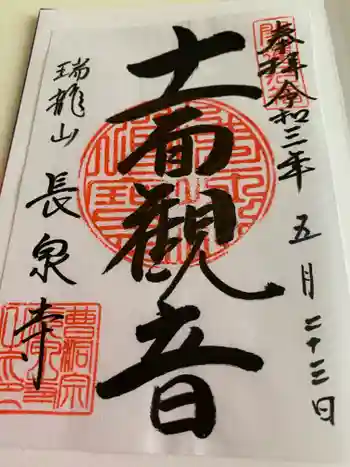 奉拝 令和三年 五月二十三日
十一面観音
瑞龍山 長泉寺
曹洞宗